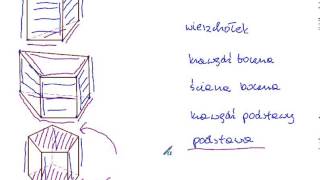 wierzchołek
krawędź boczna
ściana boczna
krawędź podstawy
podstawa